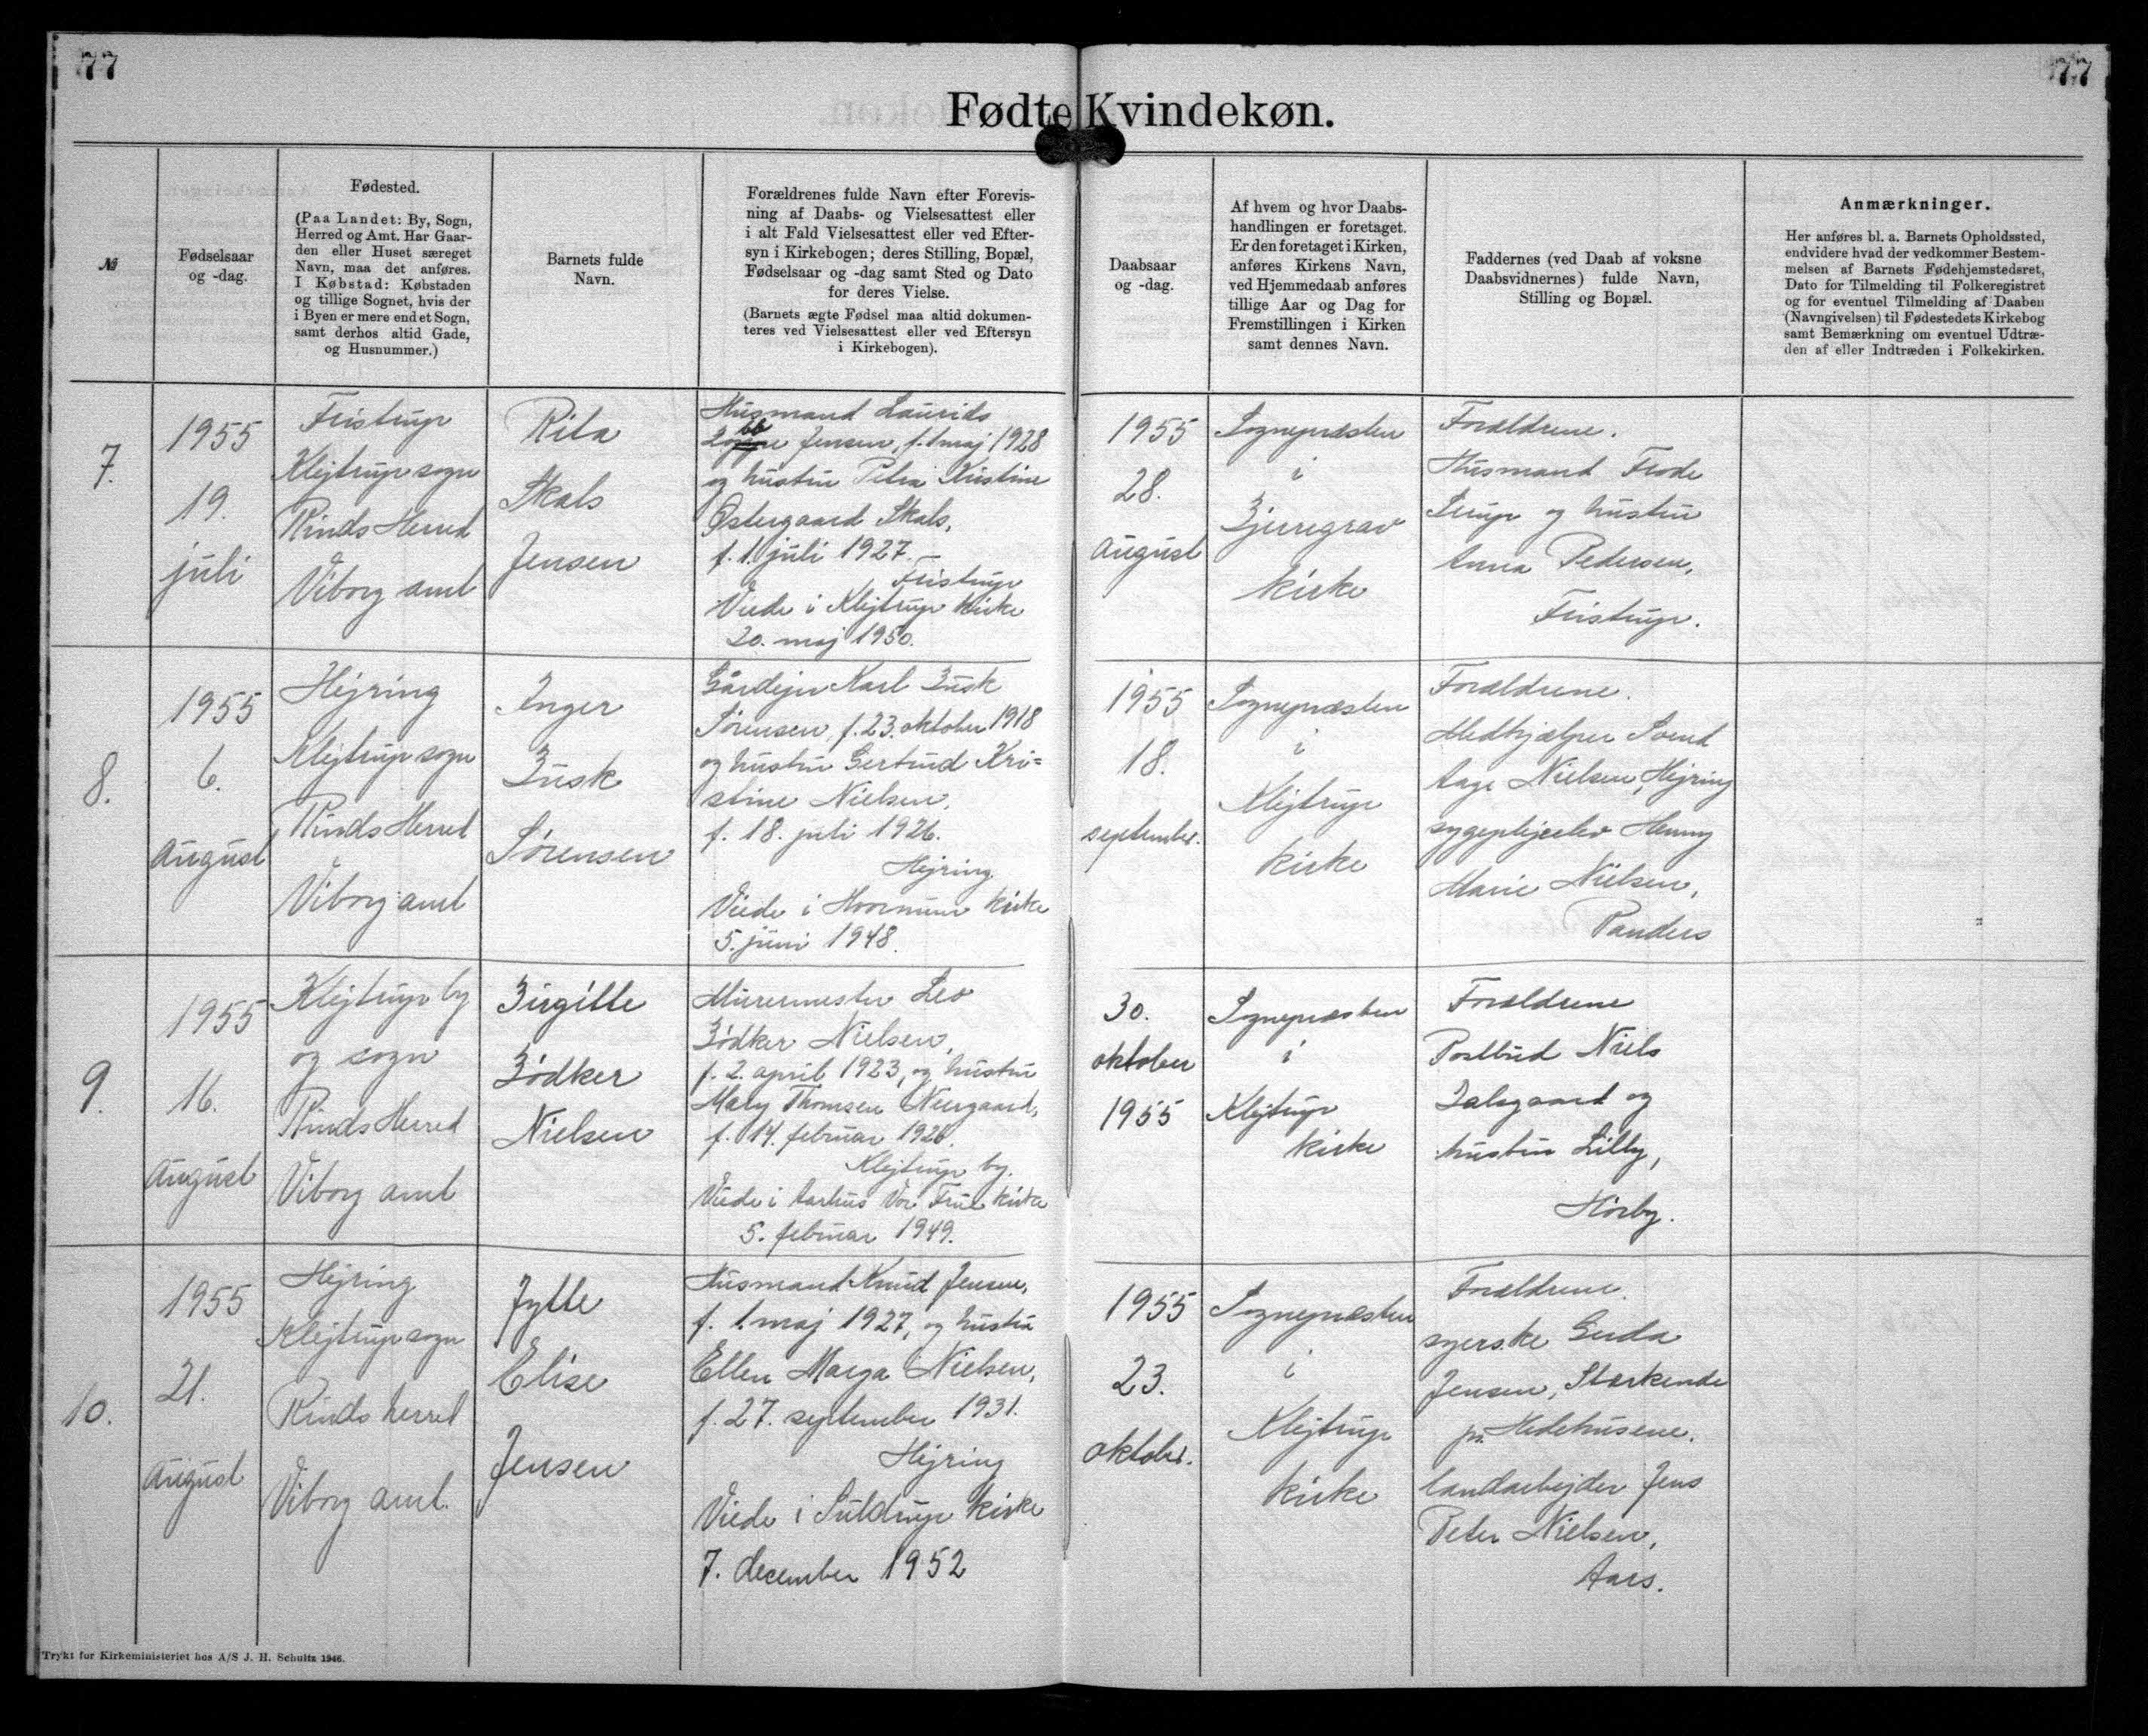 77
77
Fødte Kvindekøn.
№
Fødselsaar
og -dag.
Fødested.
(Paa Landet: By, Sogn,
Herred og Amt. Har Gaar-
den eller Huset særeget
Navn, maa det anføres.
I Købstad: Købstaden
og tillige Sognet, hvis der
i Byen er mere end et Sogn,
samt derhos altid Gade,
og Husnummer.)
Barnets fulde
Navn.
Forældrenes fulde Navn efter Forevis-
ning af Daabs- og Vielsesattest eller
i alt Fald Vielsesattest eller ved Efter-
syn i Kirkebogen; deres Stilling, Bopæl,
Fødselsaar og -dag samt Sted og Dato
for deres Vielse.
(Barnets ægte Fødsel maa altid dokumen-
teres ved Vielsesattest eller ved Eftersyn
i Kirkebogen).
Daabsaar
og -dag.
Af hvem og hvor Daabs-
handlingen er foretaget.
Er den foretaget i Kirken,
anføres Kirkens Navn,
ved Hjemmedaab anføres
tillige Aar og Dag for
Fremstillingen i Kirken
samt dennes Navn.
Faddernes (ved Daab af voksne
Daabsvidnernes) fulde Navn,
Stilling og Bopæl.
Anmærkninger.
Her anføres bl. a. Barnets Opholdssted,
endvidere hvad der vedkommer Bestem-
melsen af Barnets Fødehjemstedsret,
Dato for Tilmelding til Folkeregistret
og for eventuel Tilmelding af Daaben
(Navngivelsen) til Fødestedets Kirkebog
samt Bemærkning om eventuel Udtræ-
den af eller Indtræden i Folkekirken.
7.
1955
19.
juli
Fristrup
Klejtrup sogn
Rinds Herred
Viborg amt
Rita
Skals
Jensen
Husmand Laurids
Jensen, f. 1 maj 1928
og hustru Petra Kristine
Østergaard Skals,
f. 1. juli 1927. –
Fristrup
Viede i Klejtrup kirke
20. maj 1950.
1955
28.
August
Sognepræsten
i
Bjerregrav
kirke
Forældrene.
Husmand Frode
Serup og hustru
Anna Pedersen,
Fristrup.
8.
1955
6.
August
Hejring
Klejtrup sogn
Rinds Herred
Viborg amt
Inger
Busk
Sørensen
Gårdejer Karl Busk
Sørensen, f. 23. oktober 1918
og hustru Gertrud Kri=
stine Nielsen,
f. 18. juli 1926.
Hejring
Viede i Hvornum kirke
5. juni 1948.
1955
18.
september.
Sognepræsten
i
Klejtrup
kirke
Forældrene.
Medhjælper Svend
Aage Nielsen, Hejring
sygeplejeelev Henny
Marie Nielsen,
Randers
9.
1955
16.
August
Klejtrup by
og sogn
Rinds Herred
Viborg amt
Birgitte
Bödker
Nielsen
Murermester Leo
Bödker Nielsen,
f. 2. april 1923, og hustru
Mary Thomsen Neergaard,
f. 14. februar 1926.
Klejtrup by.
Viede i Aarhus Vor Frue kirke
5. februar 1949.
30.
oktober
1955
Sognepræsten
i
Klejtrup
kirke
Forældrene
Postbud Niels
Dalsgaard og
hustru Lilly,
Hörby.
10.
1955
21.
August
Hejring
Klejtrup sogn
Rinds herred
Viborg amt.
Jytte
Elise
Jensen
Husmand Knud Jensen,
f. 1. maj 1927, og hustru
Ellen Marga Nielsen,
f. 27. september 1931.
Hejring
Viede i Suldrup kirke
7. december 1952
1955
23.
oktober.
Sognepræsten
i
Klejtrup
kirke
Forældrene.
syerske Gerda
Jensen, Stærkende
pr. Hedehusene.
landarbejder Jens
Peter Nielsen,
Aars.
Trykt for Kirkeministeriet hos A/S J. H. Schultz 1946.